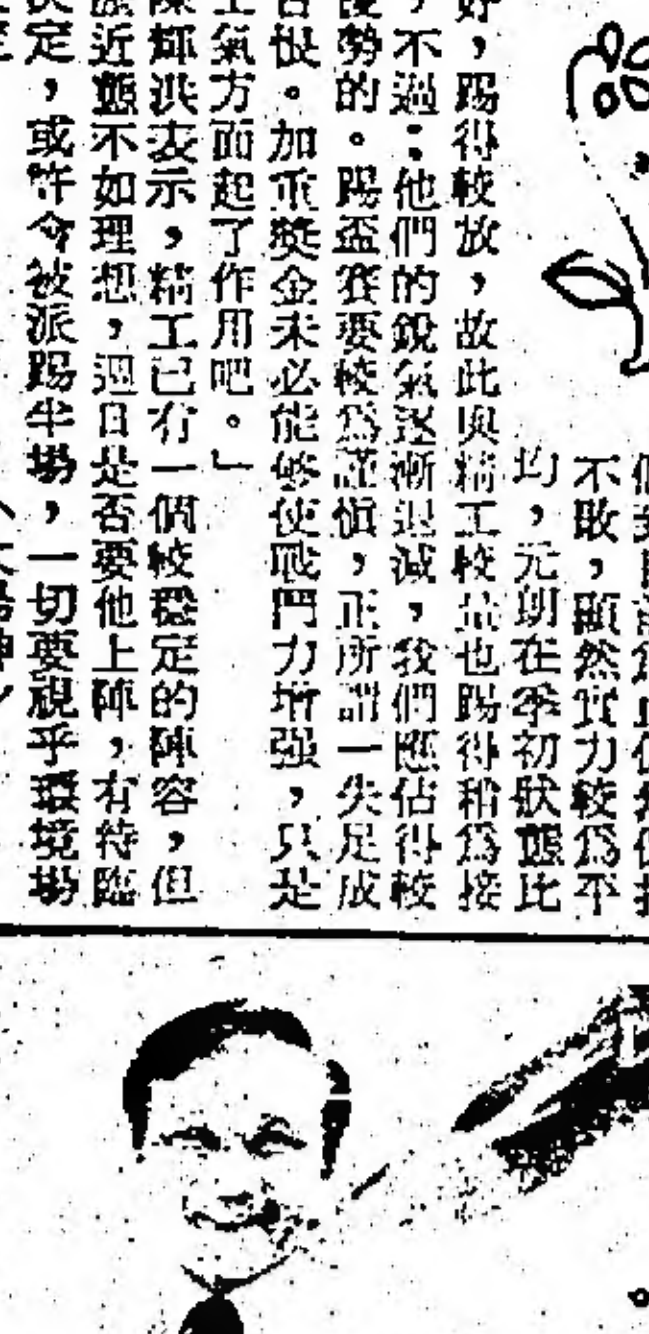 不敗，顯然實力較爲平
均，元朗在季初狀態比
好，踢得較放，故此與精工較量也踢得稍爲接
，不過：他們的銳氣逐漸退減，我們應佔得較
優勢的。踢盃賽要較爲謹慎，正所謂一失足成
恨。加重獎金未必能够使戰鬥力增强，只是
士氣方面起了作用吧。」
陳輝洪表示，精工已有一個較穩定的陣容，但
近態不如理想，週日是否要他上陣，有待臨
決定，或許令被派踢半場，一切要視乎環境場